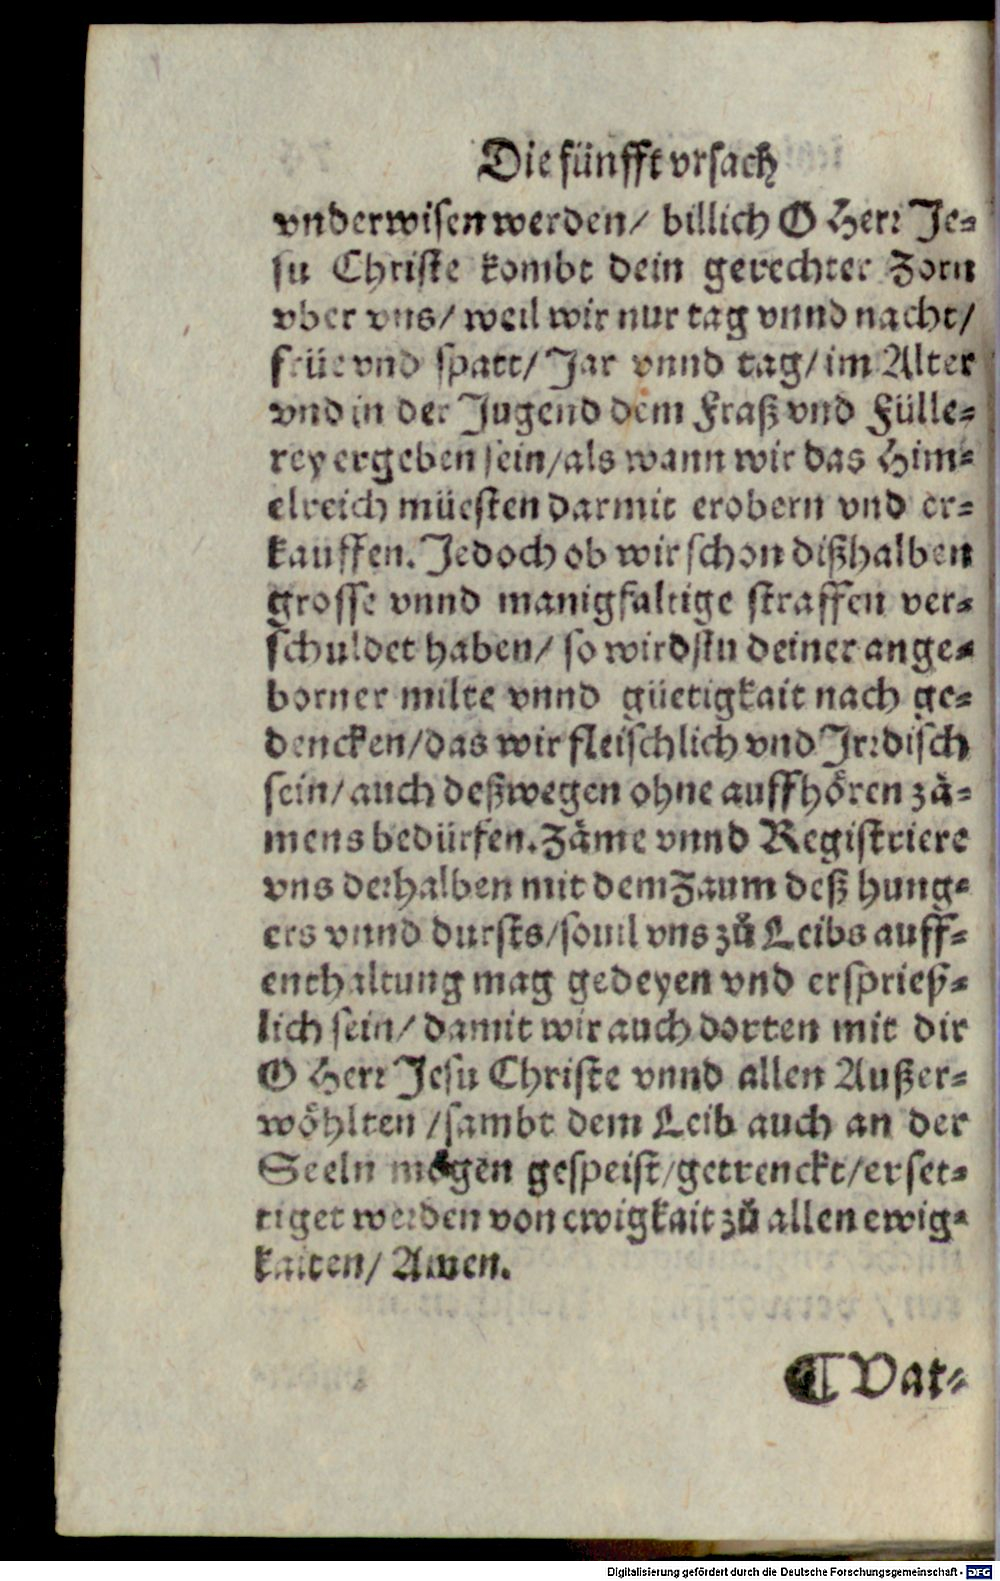 Die fünfft vrsach
vnderwisen werden/ billich O Herr Je-
su Christe kombt dein gerechter Zorn
vber vns/ weil wir nur tag vnnd nacht/
früe vnd spatt/ Jar vnnd tag/ im Alter
vnd in der Jugend dem Fraß vnd Fülle-
rey ergeben sein/als wann wir das Him-
elreich müesten darmit erobern vnd er-
kauffen. Jedoch ob wir schon dißhalben
grosse vnnd manigfaltige straffen ver-
schuldet haben/ so wirdstu deiner ange-
borner milte vnnd güetigkait nach ge-
dencken/das wir fleischlich vnd Jrrdisch
sein/ auch deßwegen ohne auffhören zä-
mens bedürfen. Zäme vnnd Registriere
vns derhalben mit dem Zaum deß hung-
ers vnnd dursts/souil vns zů Leibs auff-
enthaltung mag gedeyen vnd ersprieß-
lich sein/ damit wir auch dorten mit dir
O Herr Jesu Christe vnnd allen Außer-
wöhlten /sambt dem Leib auch an der
Seeln mögen gespeist/getrenckt/erset-
tiget werden von ewigkait zů allen ewig-
kaiten/ Amen.
¶ Vat-
Digitalisierung gefördert durch die Deutsche Forschungsgemeinschaft - DFG